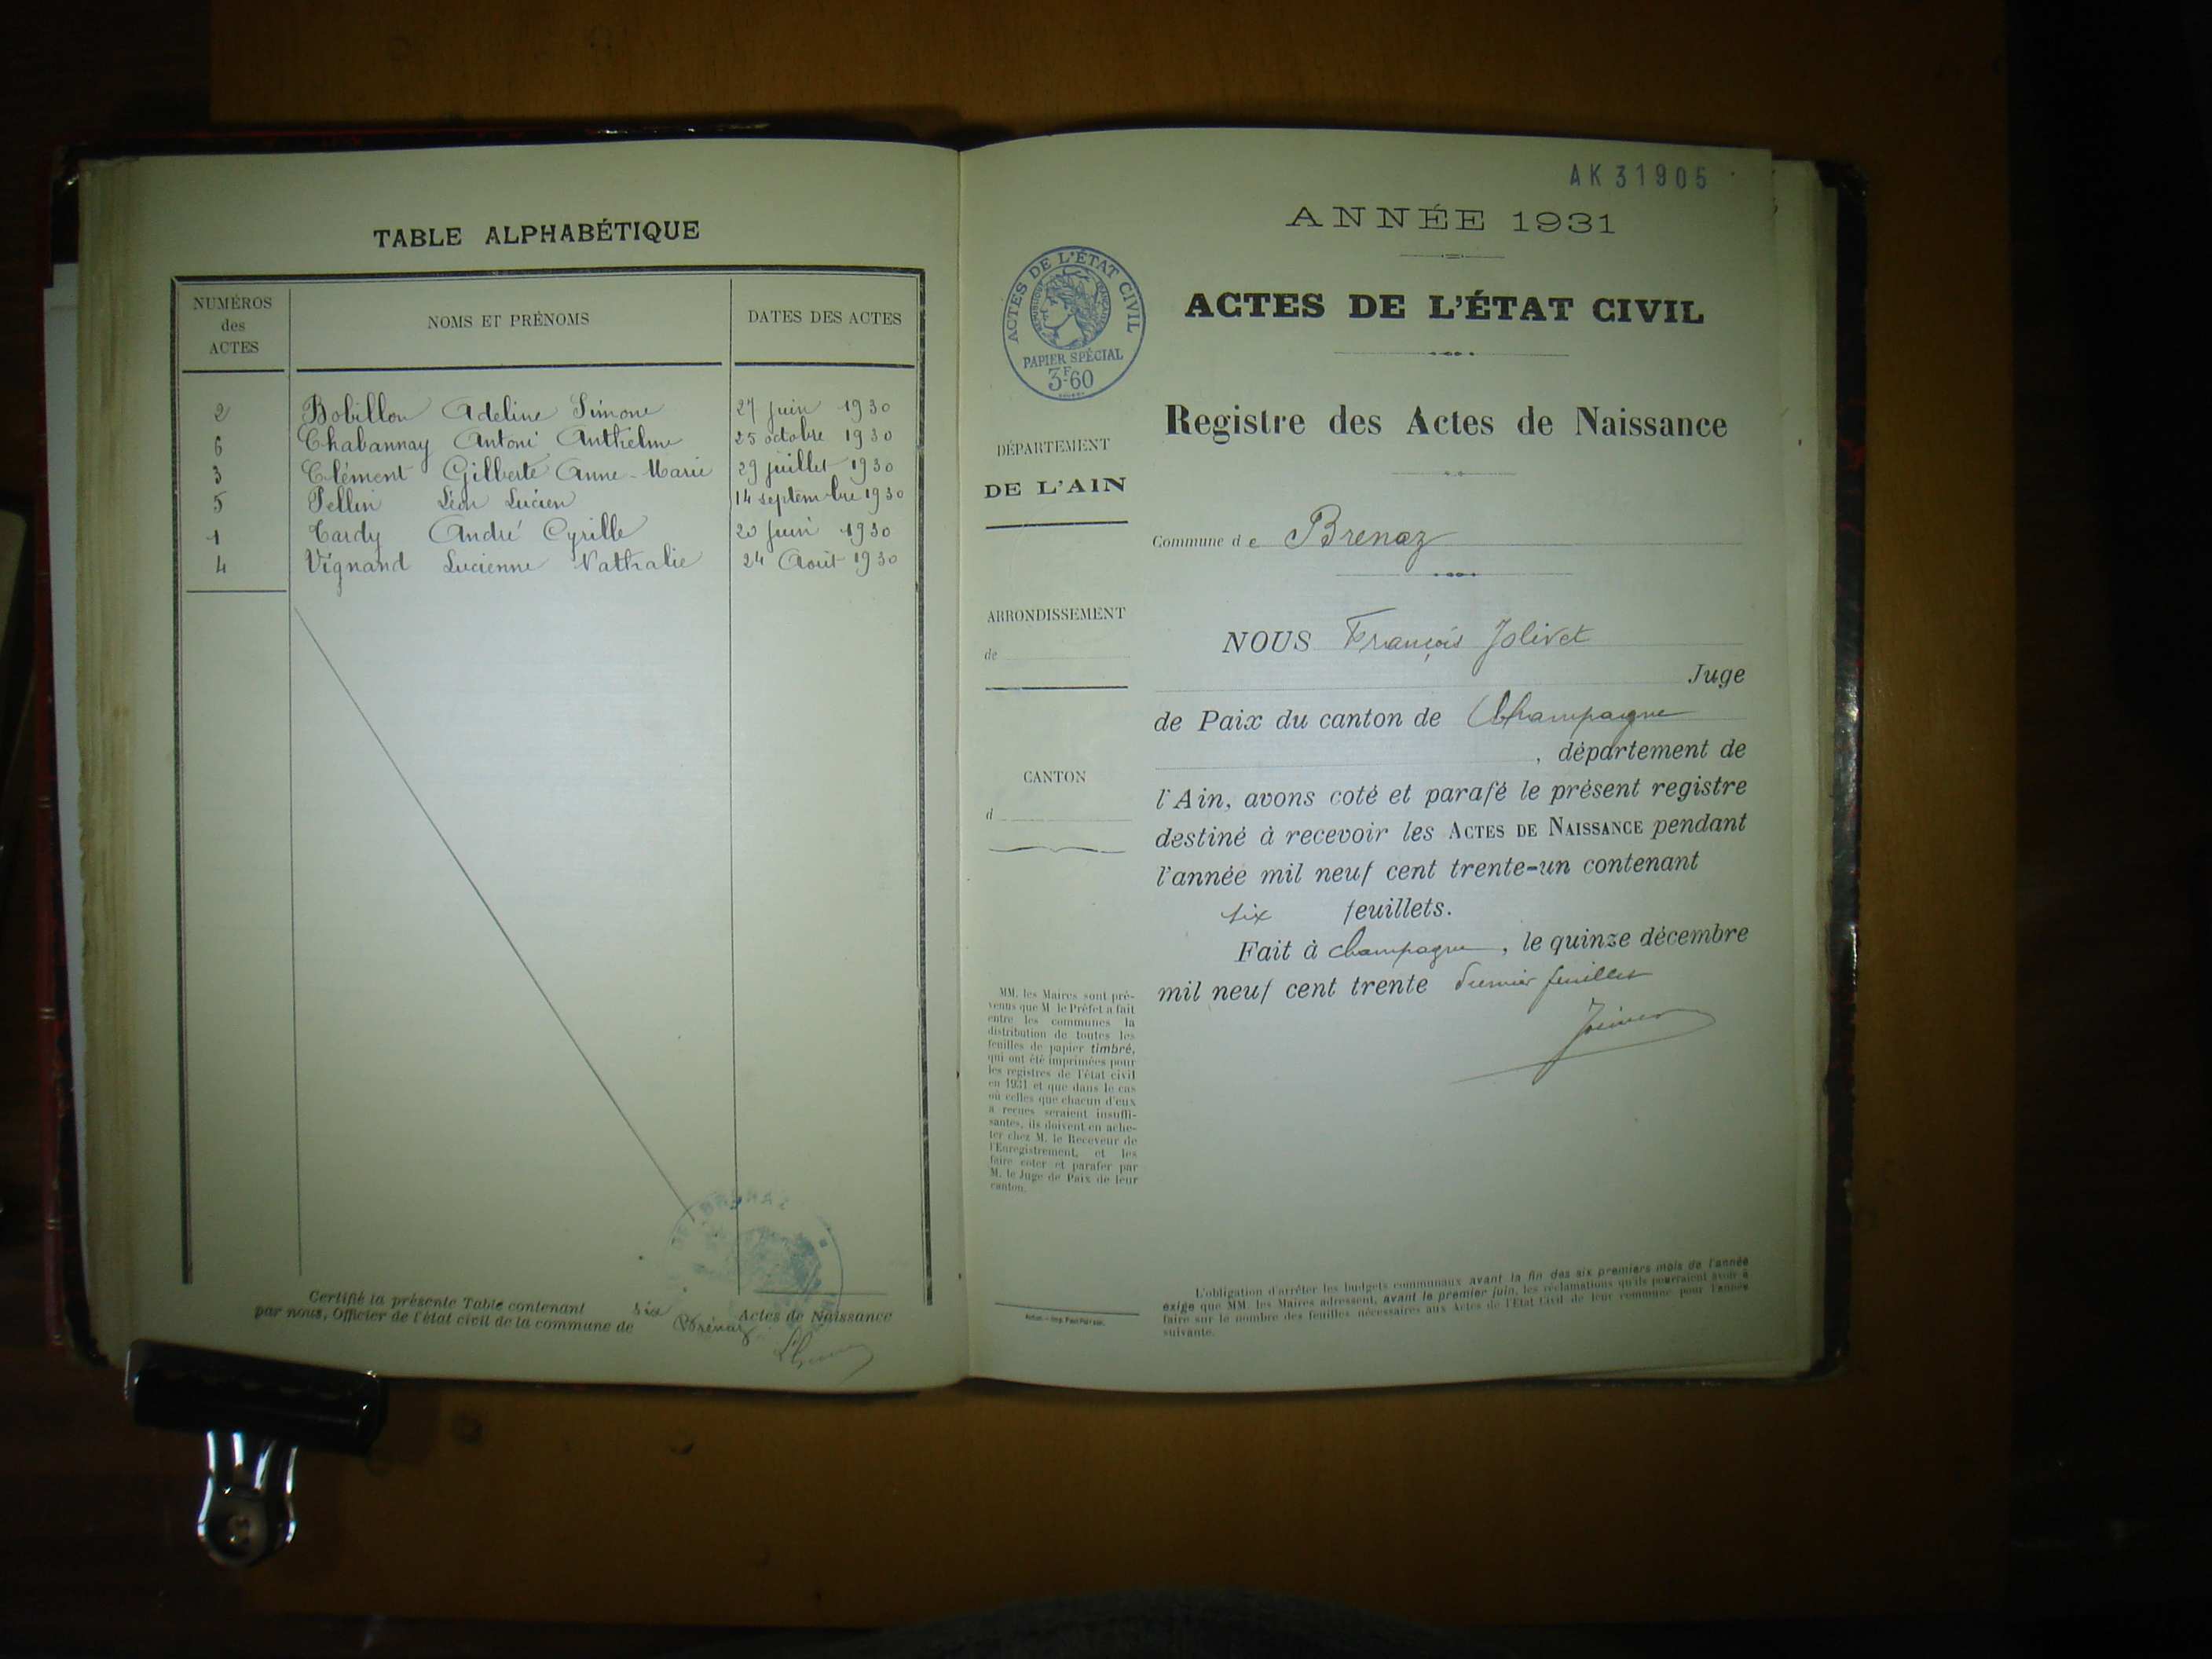 TABLE ALPHABÉTIQUE
NUMÉROS
des
ACTES
NOMS ET PRÉNOMS
DATES DES ACTES
2 Bobillon Adeline Simone 27 juin 1930
6 Chabannay Antoni Anthelme 25 octobre 1930
3 Clément Gilberte Anne-Marie 29 juillet 1930
5 Pellin Léon Lucien 14 septembre 1930
1 Tardy André Cyrille 20 juin 1930
4 Vignand Lucienne Nathalie 24 Août 1930
Certifié la présente Table contenant six Actes de Naissance
par nous, Officier de l'état civil de la commune de Brénaz
AK 31905
ANNÉE 1931
ACTES DE L'ÉTAT CIVIL
RÉPUBLIQUE FRANÇAISE
PAPIER SPÉCIAL
3F60
ACTES DE L'ÉTAT CIVIL
Registre des Actes de Naissance
DÉPARTEMENT
DE L'AIN
Commune de Brenaz
ARRONDISSEMENT
de
NOUS François Jolivet
Juge
de Paix du canton de Champagne
, département de
CANTON
d
l'Ain, avons coté et parafé le présent registre
destiné à recevoir les ACTES DE NAISSANCE pendant
l'année mil neuf cent trente-un contenant
six feuillets.
Fait à Champagne, le quinze décembre
mil neuf cent trente feuillet
MM. les Maires sont pré-
venus que M le Préfet a fait
entre les communes la
distribution de toutes les
feuilles de papier timbré,
qui ont été imprimées pour
les registres de l'état civil
en 1931 et que dans le cas
où celles que chacun d'eux
a reçues seraient insuffi-
santes, ils doivent en ache-
ter chez M. le Receveur de
l'Enregistrement, et les
faire coter et parafer par
M. le Juge de Paix de leur
canton.
L'obligation d'arrêter les budgets communaux avant la fin des six premiers mois de l'année
exige que MM. les Maires adressent, avant le premier juin, les réclamations qu'ils pourraient avoir à
faire sur le nombre des feuilles nécessaires aux Actes de l'État Civil de leur commune pour l'année
suivante.